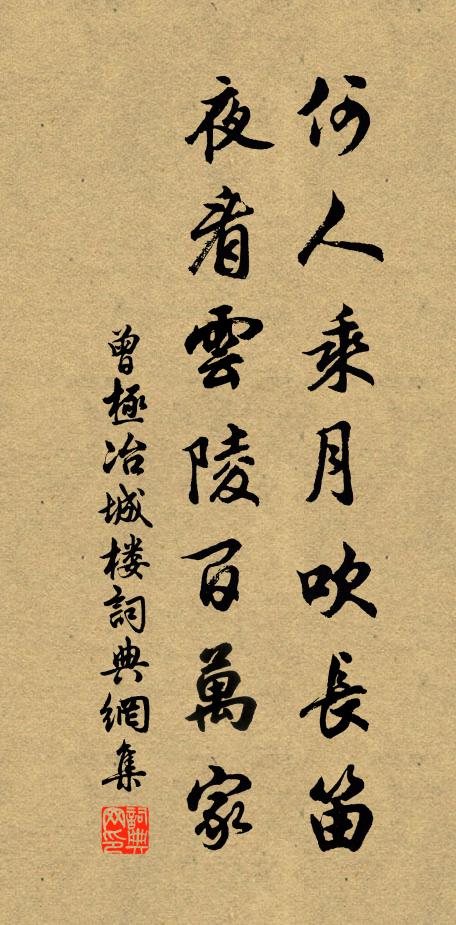 何人乘月吹長笛
夜看雲陵百萬家
曾極冶城楼詞典網集
詞典网印